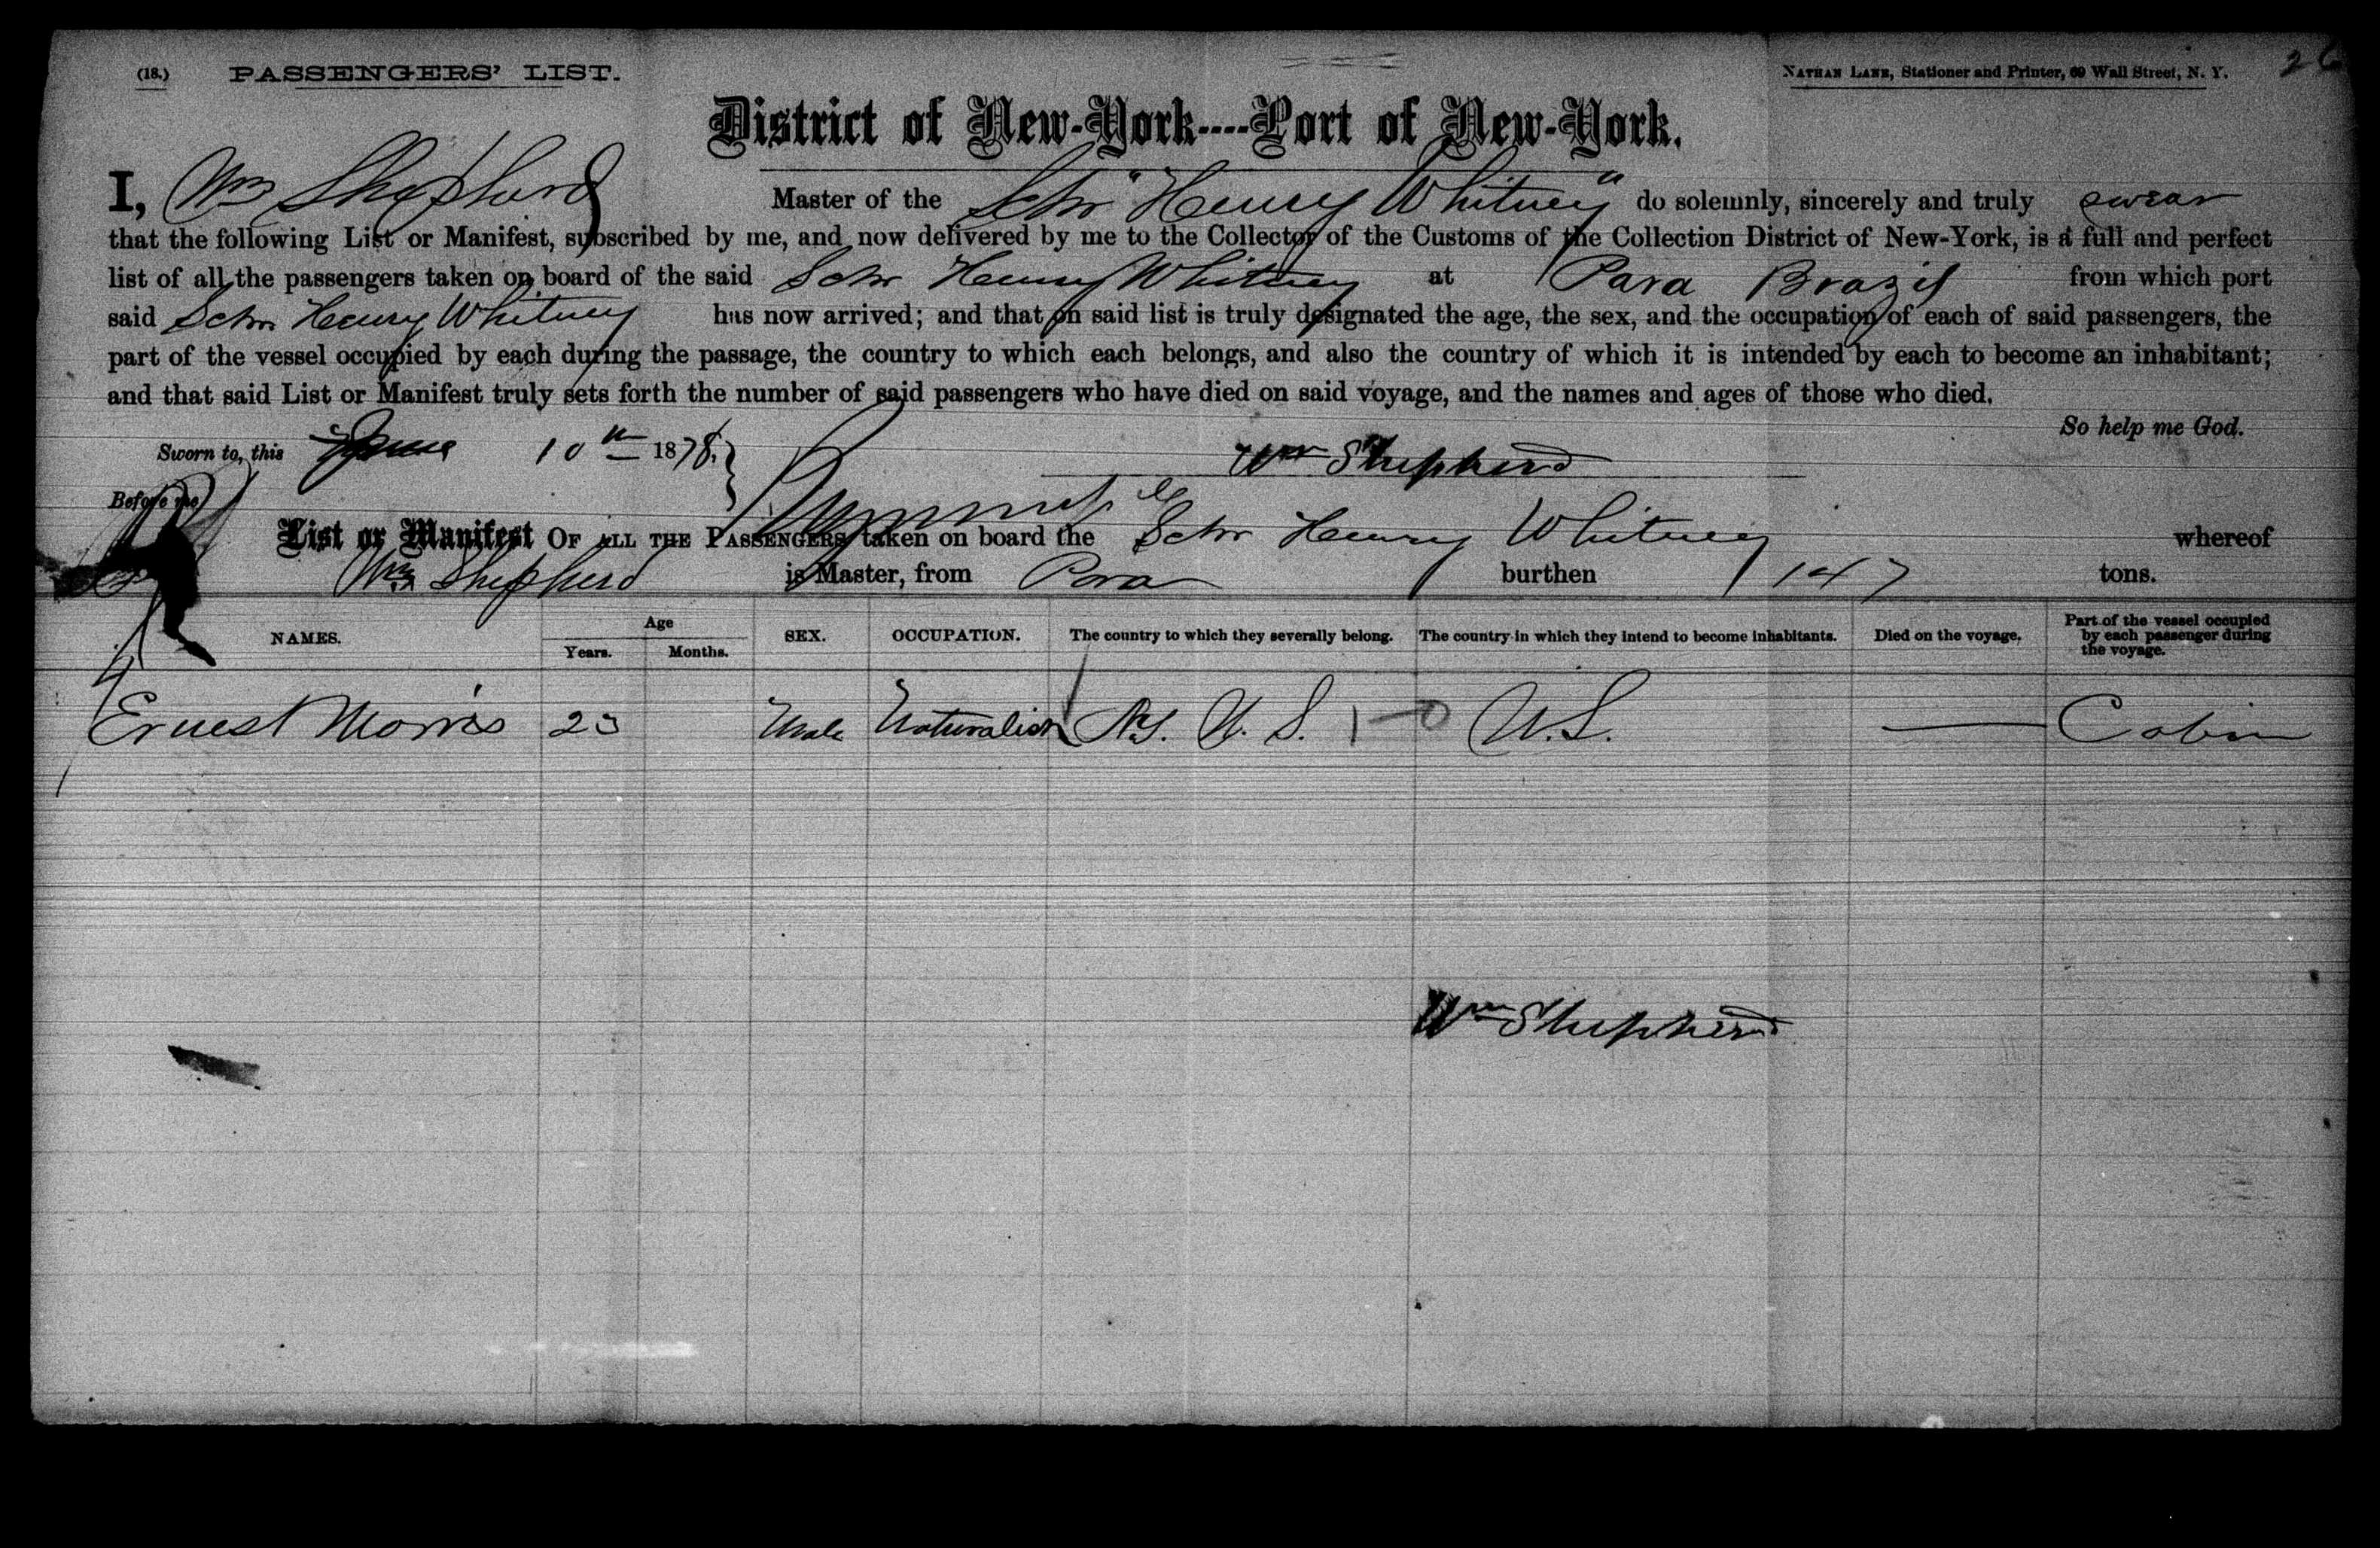 (18.) PASSENGERS' LIST.
NATHAN LANE, Stationer and Printer, 69 Wall Street, N. Y.
26
District of New-York----Port of New-York.
I, Wm Shepherd Master of the Schr "Henry Whitney" do solemnly, sincerely and truly swear
that the following List or Manifest, subscribed by me, and now delivered by me to the Collector of the Customs of the Collection District of New-York, is a full and perfect
list of all the passengers taken on board of the said Schr Henry Whitney at Para Brazil from which port
said Schr Henry Whitney has now arrived; and that on said list is truly designated the age, the sex, and the occupation of each of said passengers, the
part of the vessel occupied by each during the passage, the country to which each belongs, and also the country of which it is intended by each to become an inhabitant;
and that said List or Manifest truly sets forth the number of said passengers who have died on said voyage, and the names and ages of those who died.
So help me God.
Sworn to, this June 10th 1878.
Wm Shepherd
Before me
List or Manifest OF ALL THE PASSENGERS taken on board the Schr Henry Whitney whereof
Wm Shepherd is Master, from Para burthen 147 tons.
NAMES. Age Years. Months. SEX. OCCUPATION. The country to which they severally belong. The country in which they intend to become inhabitants. Died on the voyage. Part of the vessel occupied by each passenger during the voyage.
Ernest Morris 23 Male Naturalist U. S. 1-0 U.S. — Cabin
Wm Shepherd